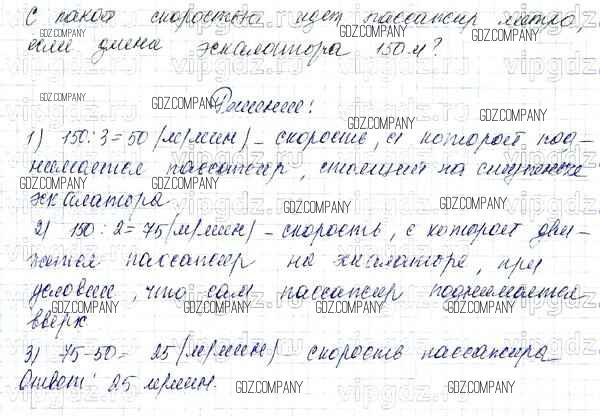 С какой скоростью идет пассажир метро,
если длина эскалатора 150 м?
GDZ.COMPANY
Решение:
1) 150:3=50 (м/мин) – скорость, с которой под-
нимается пассажир, стоящий на ступеньке
эскалатора.
2) 150:2=75 (м/мин) – скорость, с которой дви-
жется пассажир на эскалаторе, при
условии, что сам пассажир поднимается
вверх
3) 75-50= 25 (м/мин) – скорость пассажира
Ответ: 25 м/мин.
GDZ.COMPANY
vipgdz.ru